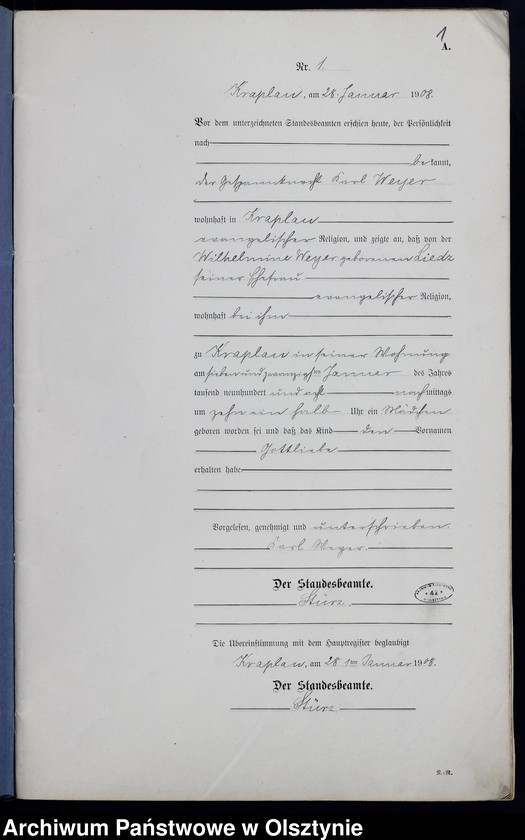 1
A.
Nr. 1.
Kraplau, am 28. Januar 1908.
Vor dem unterzeichneten Standesbeamten erschien heute, der Persönlichkeit
nach
bekannt,
der Gespannknecht Karl Weyer
wohnhaft in Kraplau
evangelischer Religion, und zeigte an, daß von der
Wilhelmine Weyer geborenen Liedz
seiner Ehefrau
evangelischer Religion,
wohnhaft bei ihm
zu Kraplau in seiner Wohnung
am sieben und zwanzigsten Januar des Jahres
tausend neunhundert und acht nachmittags
um zehn ein halb Uhr ein Mädchen
geboren worden sei und daß das Kind den Vornamen
Gottliebe
erhalten habe
Vorgelesen, genehmigt und unterschrieben.
Karl Weyer.
Der Standesbeamte.
Stürz.
Die Übereinstimmung mit dem Hauptregister beglaubigt
Kraplau, am 28 ten Januar 1908.
Der Standesbeamte.
Stürz
Archiwum Państwowe w Olsztynie